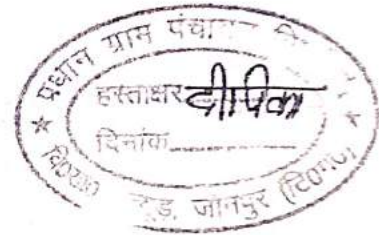 प्रधान ग्राम
हस्ताक्षर दीपिका
दिनांक
जौनपुर (टि०ग०)